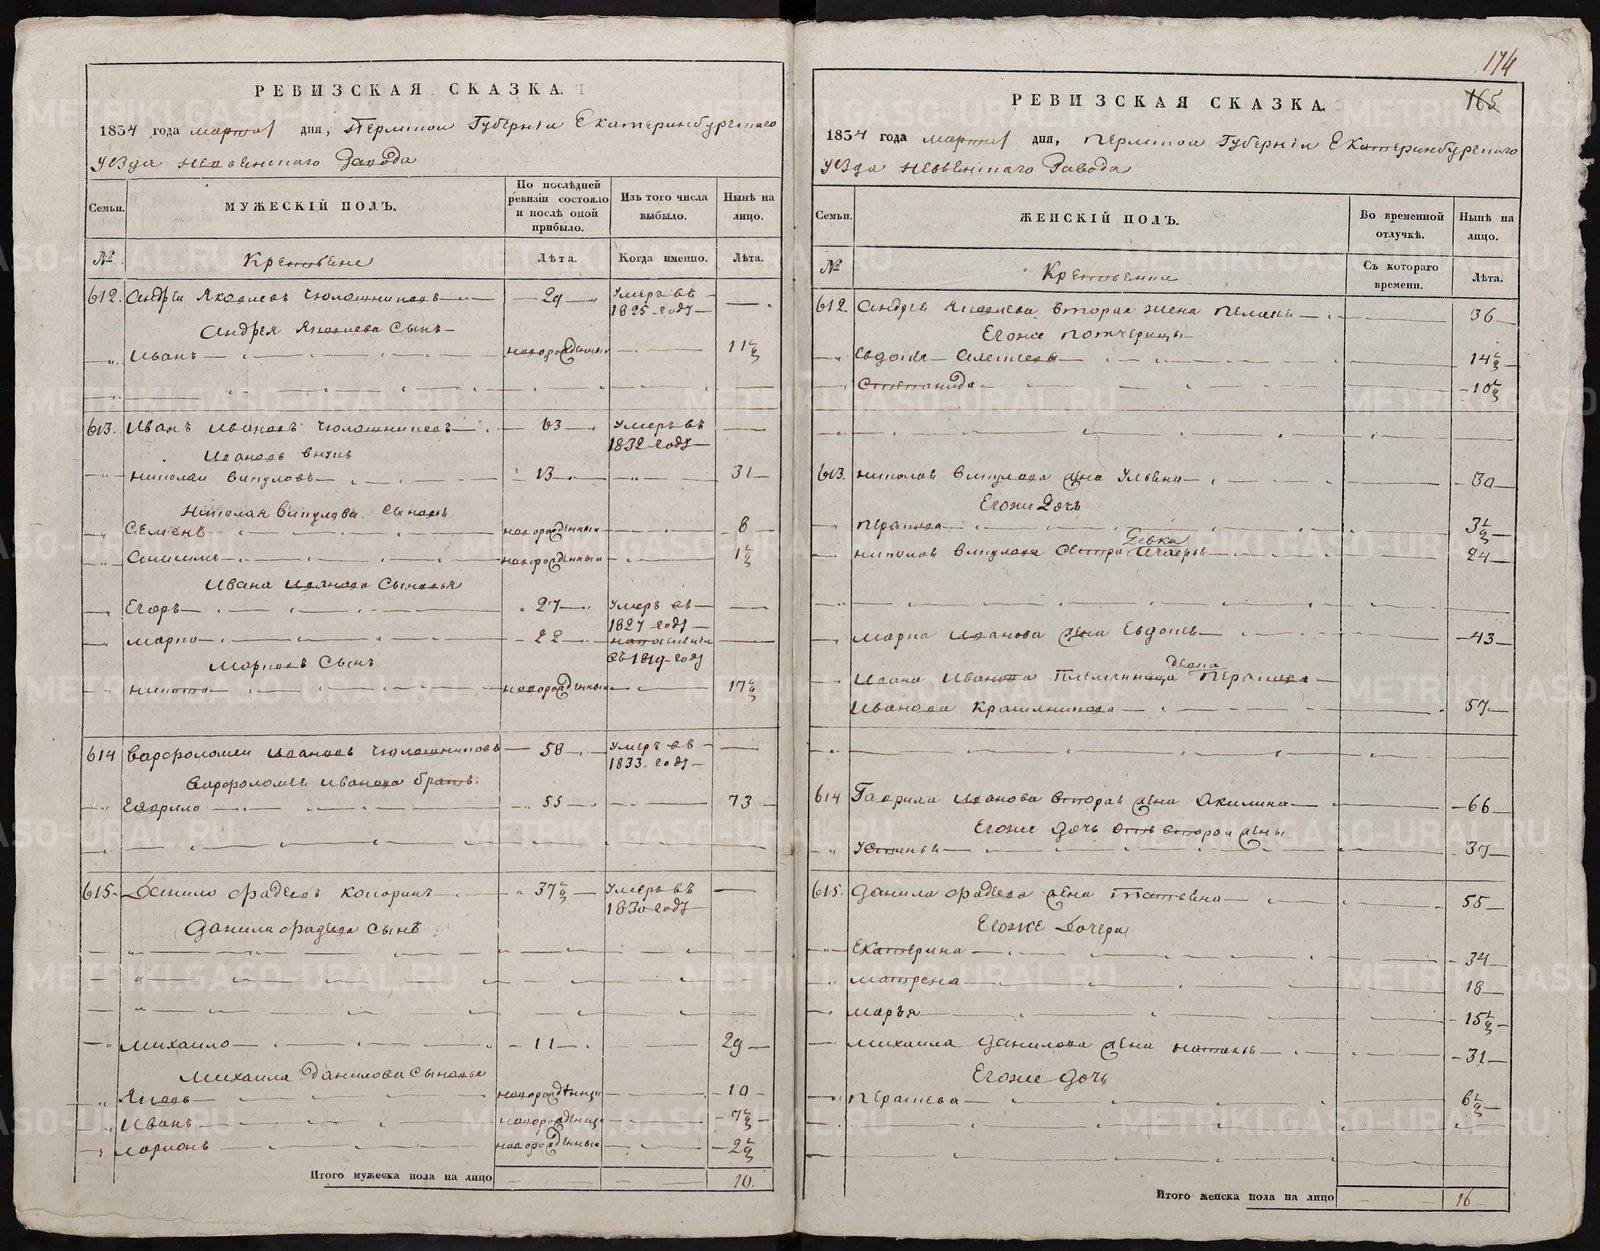 РЕВИЗСКАЯ СКАЗКА.
1834 года марта 1 дня, Пермской Губернiи Екатеринбургскаго
уезда Невьянскаго Завода
Семьи.
МУЖЕСКIЙ ПОЛЪ.
По послѣдней ревизiи состояло и послѣ оной прибыло.
Изъ того числа выбыло.
Нынѣ на лицо.
№
Лѣта.
Когда именно.
Лѣта.
612. Андреи Яковлевъ 29 Умеръ въ
1825 году
Андрея Яковлева Сынъ
Иванъ новорожденный 11 1/2
613. Иванъ Ивановъ 63 Умеръ въ
1832 году
Ивановъ внукъ
Николаи Викуловъ 13 31
Николая Викулова Сыновья
Семенъ новорожденный 8
новорожденный 1 1/2
Ивана Иванова Сыновья
Егоръ 27 Умеръ въ
1827 году
Марко 22
въ 1819 году
Марковъ Сынъ
Никита новорожденный 17 1/2
614 Варфоломеи Ивановъ 58 Умеръ въ
1833 году
Варфоломея Иванова братъ
Гаврило 55 73
615 Данило Фадеевъ 37 1/2 Умеръ въ
1830 году
Данила Фадеева Сынъ
Михаило 11 29
Михаила Данилова Сыновья
Яковъ новорожденны 10
Иванъ новорожденны 7 1/2
Ларионъ новорожденный 2 1/2
Итого мужеска пола на лицо 10.
174
165
РЕВИЗСКАЯ СКАЗКА.
1834 года марта 1 дня, Пермской Губернiи Екатеринбургскаго
уезда Невьянскаго Завода
Семьи.
ЖЕНСКIЙ ПОЛЪ.
Во временной отлучкѣ.
Нынѣ на лицо.
№
Съ котораго времени.
Лѣта.
612 Андрея Яковлева вторая жена 36
Егоже потчерицы
14 1/2
Степанида 10 1/2
613. Николая Викулова жена Ульяна 30
Егоже Дочь
3 1/2
Николая Викулова Сестра Девка 24
Марка Иванова жена 43
Ивана Иванова Племянница девка
Иванова 57
614 Гаврила Иванова вторая жена Акилина 66
Егоже дочь отъ второй жены
Устинья 37
615. Данила Фадеева жена Татьяна 55
Егоже Дочери
Екатерина 34
Матрена 18
Марья 15 1/2
Михаила Данилова жена Наталья 31
Егоже Дочь
6 1/2
Итого женска пола на лицо 16
METRIKI.GASO-URAL.RU